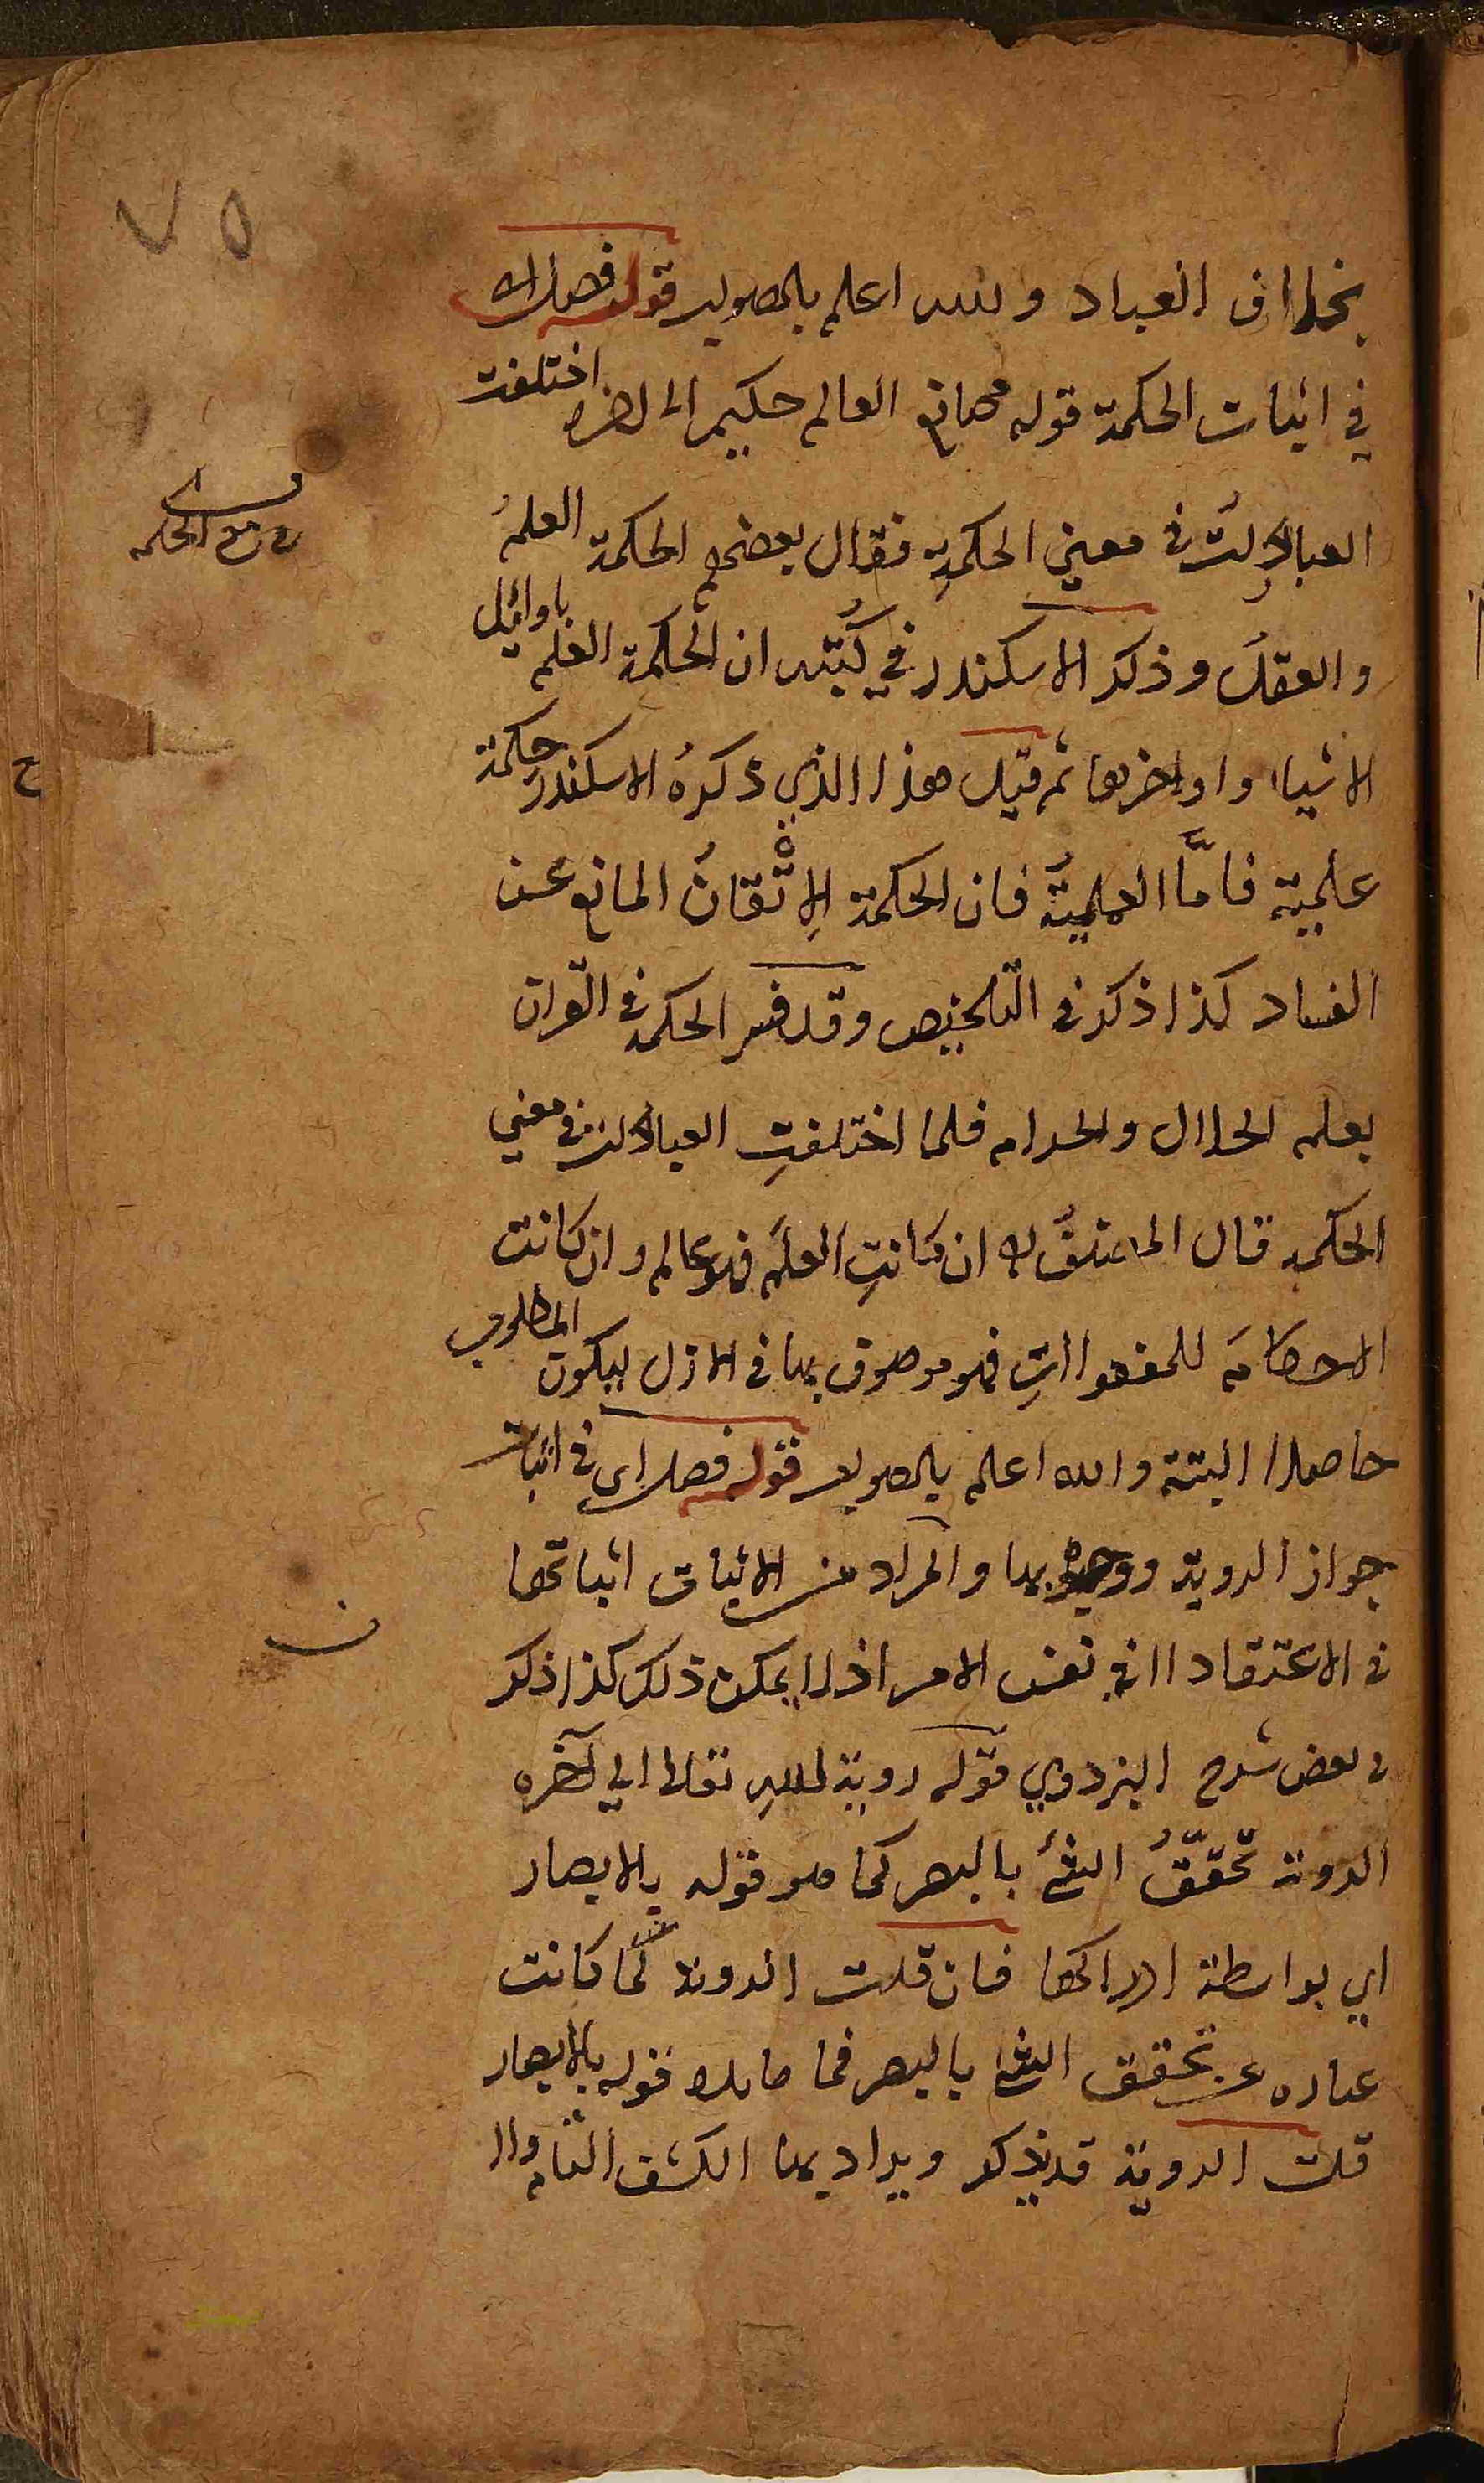 ٧٥
بخلاف العباد والله اعلم بالصواب قوله فصل اي
في اثبات الحكمة قوله صانع العالم حكيم الى اخره اختلفت
العبارات في معني الحكمةِ فقال بعضهم الحكمة العلمُ
والعقلُ وذكر الاسكندر في كُتُبه ان الحكمة العلم باوائل
الاشياء واواخرها ثم قيل هذا الذي ذكرهُ الاسكندر حكمة
علمية فامَّا العمليةُ فان الحكمة الاِتْقانُ المانع عن
الفساد كذا ذكر في التلخيص وقد فسر الحكمة في القران
بعلم الحلال والحرام فلما اختلفتِ العبارات في معني
الحكمة قال المصنفُ ان كانتِ العلمَ فهو عالم وان كانت
الاحكامَ للمفعولاتِ فهو موصوف بها في الازل ليكون المطلوب
حاصلا البتة والله اعلم بالصواب قوله فصل اي في اثبات
جواز الروية ووجوبها والمراد من الاثبات اثباتها
في الاعتقاد لا في نفس الامر اذ لا يمكن ذلك كذا ذكر
في بعض شروح البزدوي قوله روية اللهِ تعالى الي آخره
الروية تحقّقُ الشئ بالبصر كما هو قوله بالابصار
اي بواسطة ادراكها فان قلت الروية لمّا كانت
عباره عن تحقق الشئ بالبصر فما فايدة قوله بالابصار
قلت الروية قد يذكر ويراد بها الكشف التام ولا
في معنى الحكمة